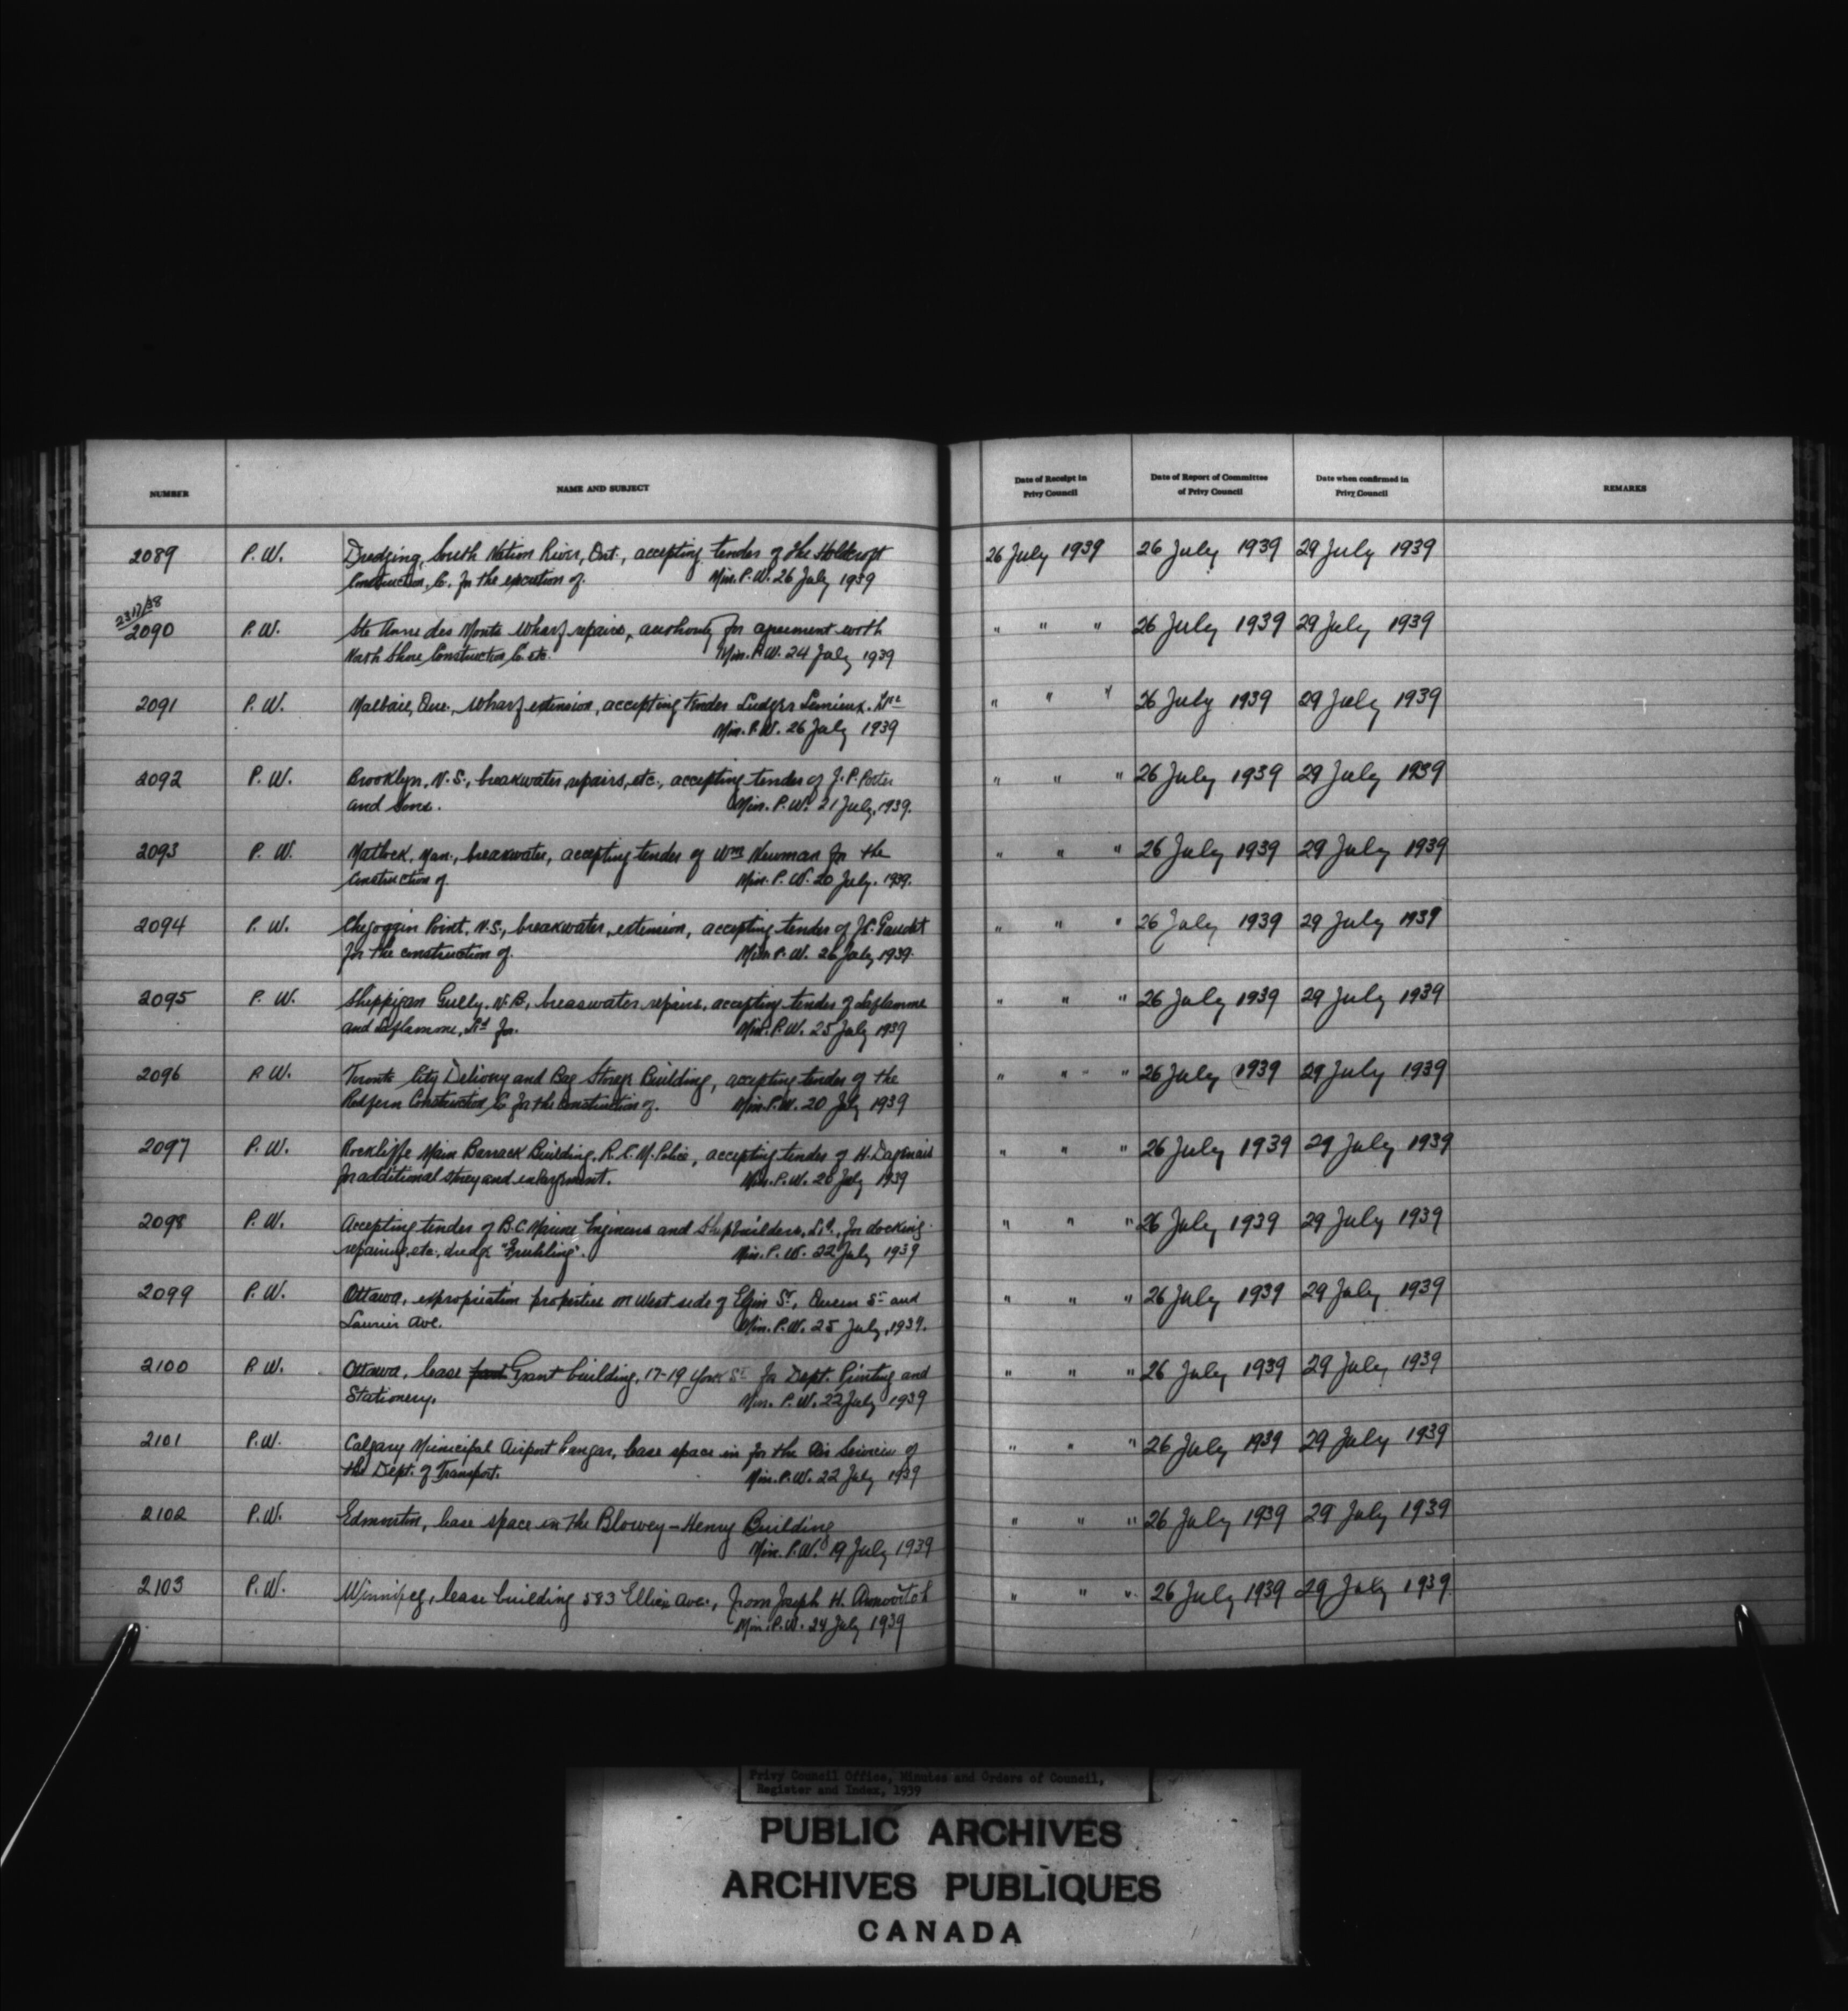 NUMBER NAME AND SUBJECT Date of Receipt in Privy Council Date of Report of Committee of Privy Council Date when confirmed in Privy Council REMARKS
2089 P. W. Dredging, South Nation River, Ont., accepting tender of the Holdcroft 26 July 1939 26 July 1939 29 July 1939
Construction Co. for the execution of. Min. P. W. 26 July 1939
2317/38
2090 P. W. Ste Anne des Monts wharf repairs, authority for agreement with " " " 26 July 1939 29 July 1939
North Shore Construction Co. etc. Min. P. W. 24 July 1939
2091 P. W. Malbaie, Que., wharf extension, accepting tender Ludger Lemieux. " " " 26 July 1939 29 July 1939
Min. P. W. 26 July 1939
2092 P. W. Brooklyn, N. S., breakwater repairs, etc., accepting tender of J. P. Porter " " " 26 July 1939 29 July 1939
and Sons. Min. P. W. 21 July, 1939.
2093 P. W. Matlock, Man., breakwater, accepting tender of Wm Newman for the " " " 26 July 1939 29 July 1939
construction of. Min. P. W. 20 July. 1939.
2094 P. W. Chegoggin Point, N. S., breakwater, extension, accepting tender of Gaudet " " " 26 July 1939 29 July 1939
for the construction of. Min. P. W. 26 July 1939.
2095 P. W. Shippigan Gully, N. B., breakwater repairs, accepting tender of Laflamme " " " 26 July 1939 29 July 1939
and Laflamme, Ltd for. Min. P. W. 25 July 1939
2096 P. W. Toronto City Delivery and Bag Storage Building, accepting tender of the " " " 26 July 1939 29 July 1939
Redfern Construction Co for the construction of. Min. P. W. 20 July 1939
2097 P. W. Rockliffe Main Barrack Building, R. C. M. Police, accepting tender of H. Dagenais " " " 26 July 1939 29 July 1939
for additional storey and enlargment. Min. P. W. 26 July 1939
2098 P. W. Accepting tender of B. C. Marine Engineers and Shipbuilders, Ltd., for docking " " " 26 July 1939 29 July 1939
repairing, etc., dredge "Fruhling". Min. P. W. 22 July 1939
2099 P. W. Ottawa, expropriation properties on west side of Elgin St, Queen St and " " " 26 July 1939 29 July 1939
Laurier Ave. Min. P. W. 25 July, 1939.
2100 P. W. Ottawa, lease Grant building, 17-19 York St for Dept. Printing and " " " 26 July 1939 29 July 1939
Stationery. Min. P. W. 22 July 1939
2101 P. W. Calgary Municipal Airport hangar, lease space in for the Air Services of " " " 26 July 1939 29 July 1939
the Dept. of Transport. Min. P. W. 22 July 1939
2102 P. W. Edmonton, lease space in the Blowey-Henry Building " " " 26 July 1939 29 July 1939
Min. P. W. 19 July 1939
2103 P. W. Winnipeg, lease building 583 Ellice Ave., from Joseph H. " " " 26 July 1939 29 July 1939
Min. P. W. 24 July 1939
Privy Council Office, Minutes and Orders of Council,
Register and Index, 1939
PUBLIC ARCHIVES
ARCHIVES PUBLIQUES
CANADA